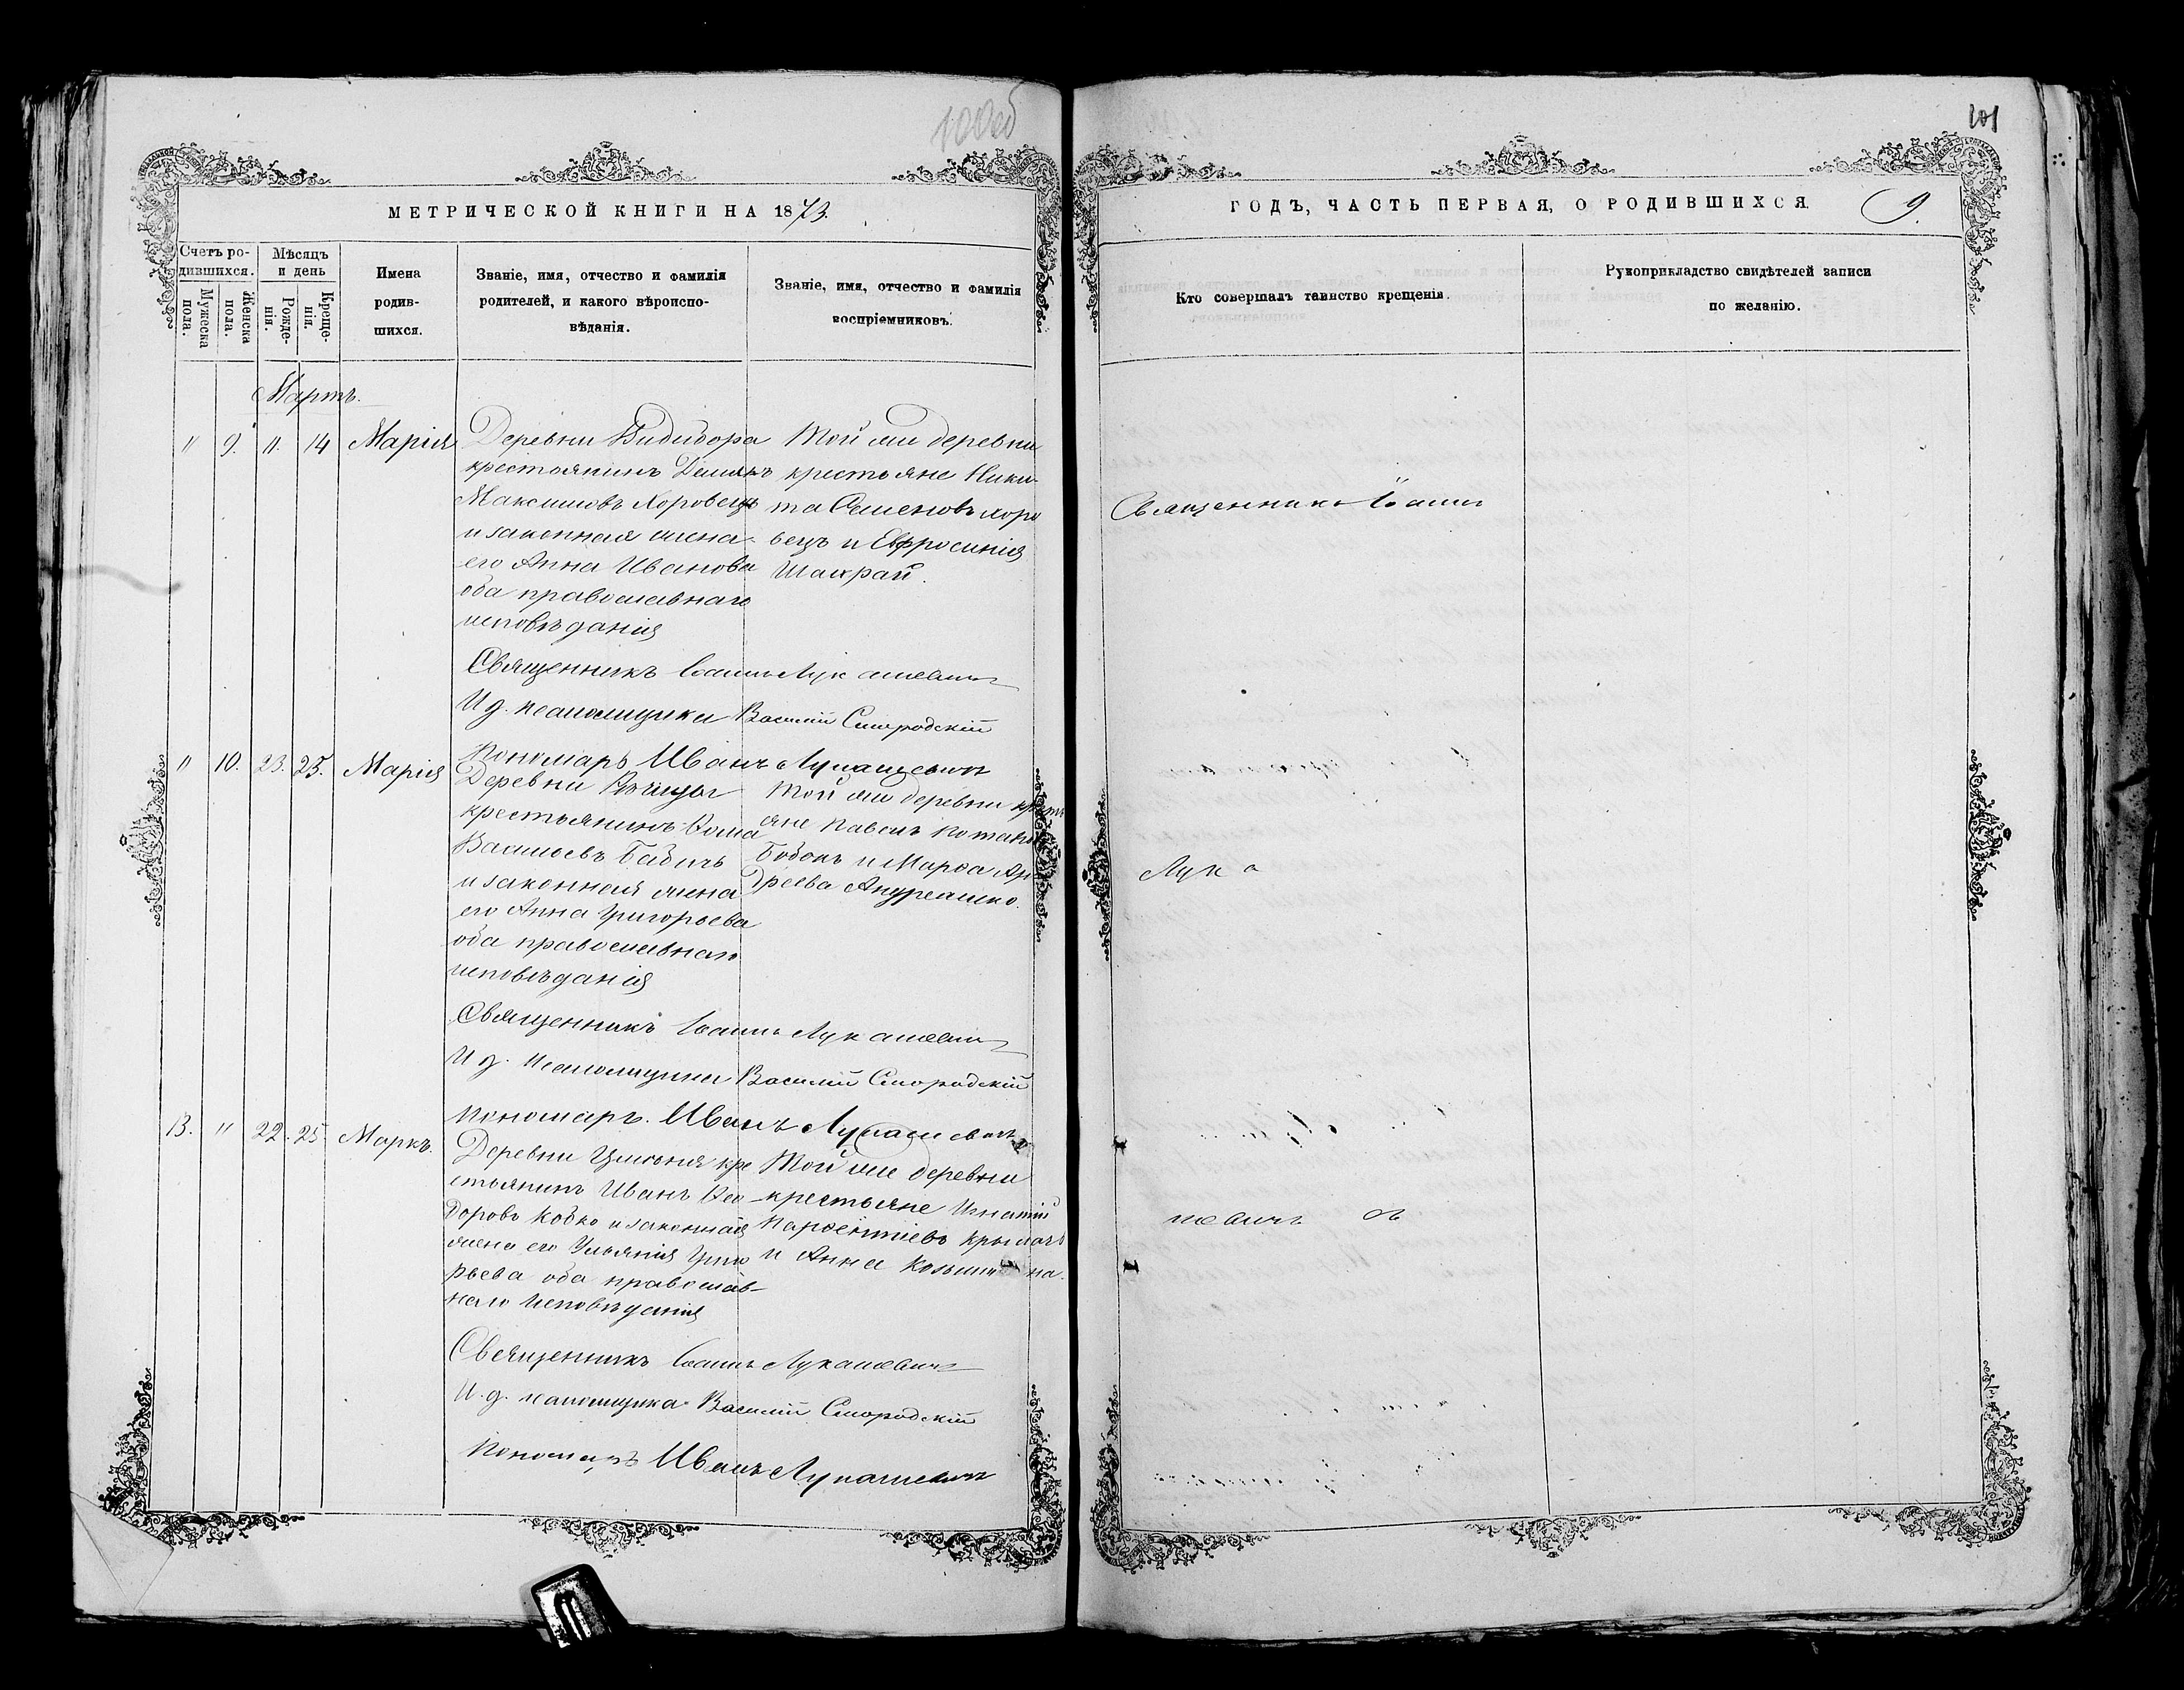 100об
101
МЕТРИЧЕСКОЙ КНИГИ НА 1873.
Счетъ родившихся.
Мужеска пола.
Женска пола.
Мѣсяцъ и день
Рожденія.
Крещенія.
Имена родившихся.
Званіе, имя, отчество и фамилія родителей, и какого вѣроисповѣданія.
Званіе, имя, отчество и фамилія воспріемниковъ.
Мартъ.
" 9. 11. 14 Марія
Деревни Видибора
крестьянинъ Демьянъ
Максимовъ Хоровецъ
и законная жена
его Анна Иванова
оба православнаго
исповѣданія
Той же деревни
крестьяне Ники-
та Семеновъ Хоро
вецъ и Евфросинія
Шакрай.
Священникъ Іоаннъ Лукашевичъ
И. д. псаломщика Василій Смородскій
Пономарь Иванъ Лукашевичъ
" 10. 23. 25. Марія
Деревни
крестьянинъ Ѳома
Васильевъ Бабичъ
и законная жена
его Анна Григорьева
оба православнаго
исповѣданія
Той же деревни крестъ
яне Павелъ
Бобокъ и Марѳа Ан
дреева
Священникъ Іоаннъ Лукашевичъ
И. д. псаломщика Василій Смородскій
Пономарь. Иванъ Лукашевичъ
13. " 22. 25. Маркъ.
Деревни кре
стьянинъ Иванъ Ѳео
доровъ Кобко и законная
жена его Ульянія Григо
рьева оба православ-
наго исповѣданія
Той же деревни
крестьяне Игнатій
Парѳентіевъ
и Анна
Священникъ Іоаннъ Лукашевичъ
И. д. псаломщика Василій Смородскій
Пономарь Иванъ Лукашевичъ
ГОДЪ, ЧАСТЬ ПЕРВАЯ, О РОДИВШИХСЯ.
9.
Кто совершалъ таинство крещенія.
Рукоприкладство свидѣтелей записи
по желанію.
Священникъ Іоаннъ
Лука
шевичъ